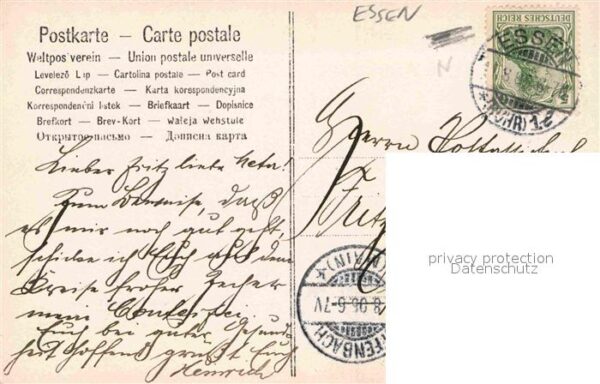 ESSEN
N
DEUTSCHES REICH
ESSEN
(RUHR) 1.
Postkarte — Carte postale
Weltpostverein — Union postale universelle
Levelező Lap — Cartolina postale — Post card
Correspondenzkarte — Karta korespondencyjna
Korespondenční lístek — Briefkaart — Dopisnice
Brefkort — Brev-Kort — Waleja Wehstule
Открытое письмо — Дописна карта
Lieber Fritz liebe Meta!
Zum Beweise, daß
es mir noch gut geht,
schicke ich Euch aus dem
Kreise froher Zecher
mein Conterfei.
Euch bei guter Gesund-
heit hoffend grüßt Euch
Heinrich
Herrn
Fritz
8.06.6-7V
TENBACH
(RHEIN)
privacy protection
Datenschutz